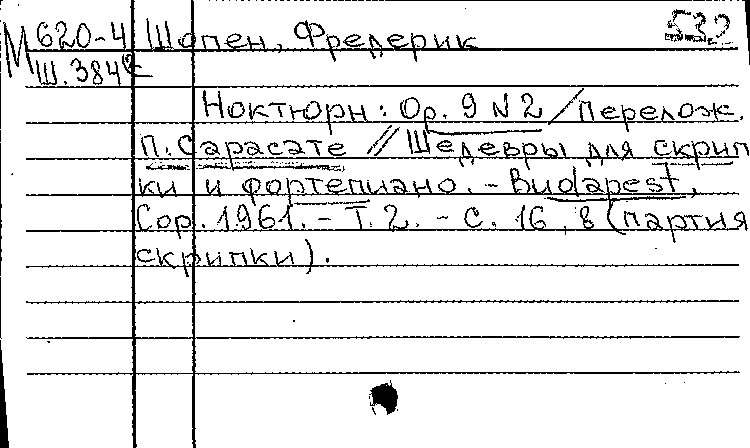 М 620-4 Шопен, Фредерик 532
Ш.384к
Ноктюрн: Op. 9 N 2 / Перелож.
П. Сарасате // Шедевры для скрип
ки и фортепиано. - Budapest,
Cop. 1961. - Т. 2. - С. 16, 8 (партия
скрипки).